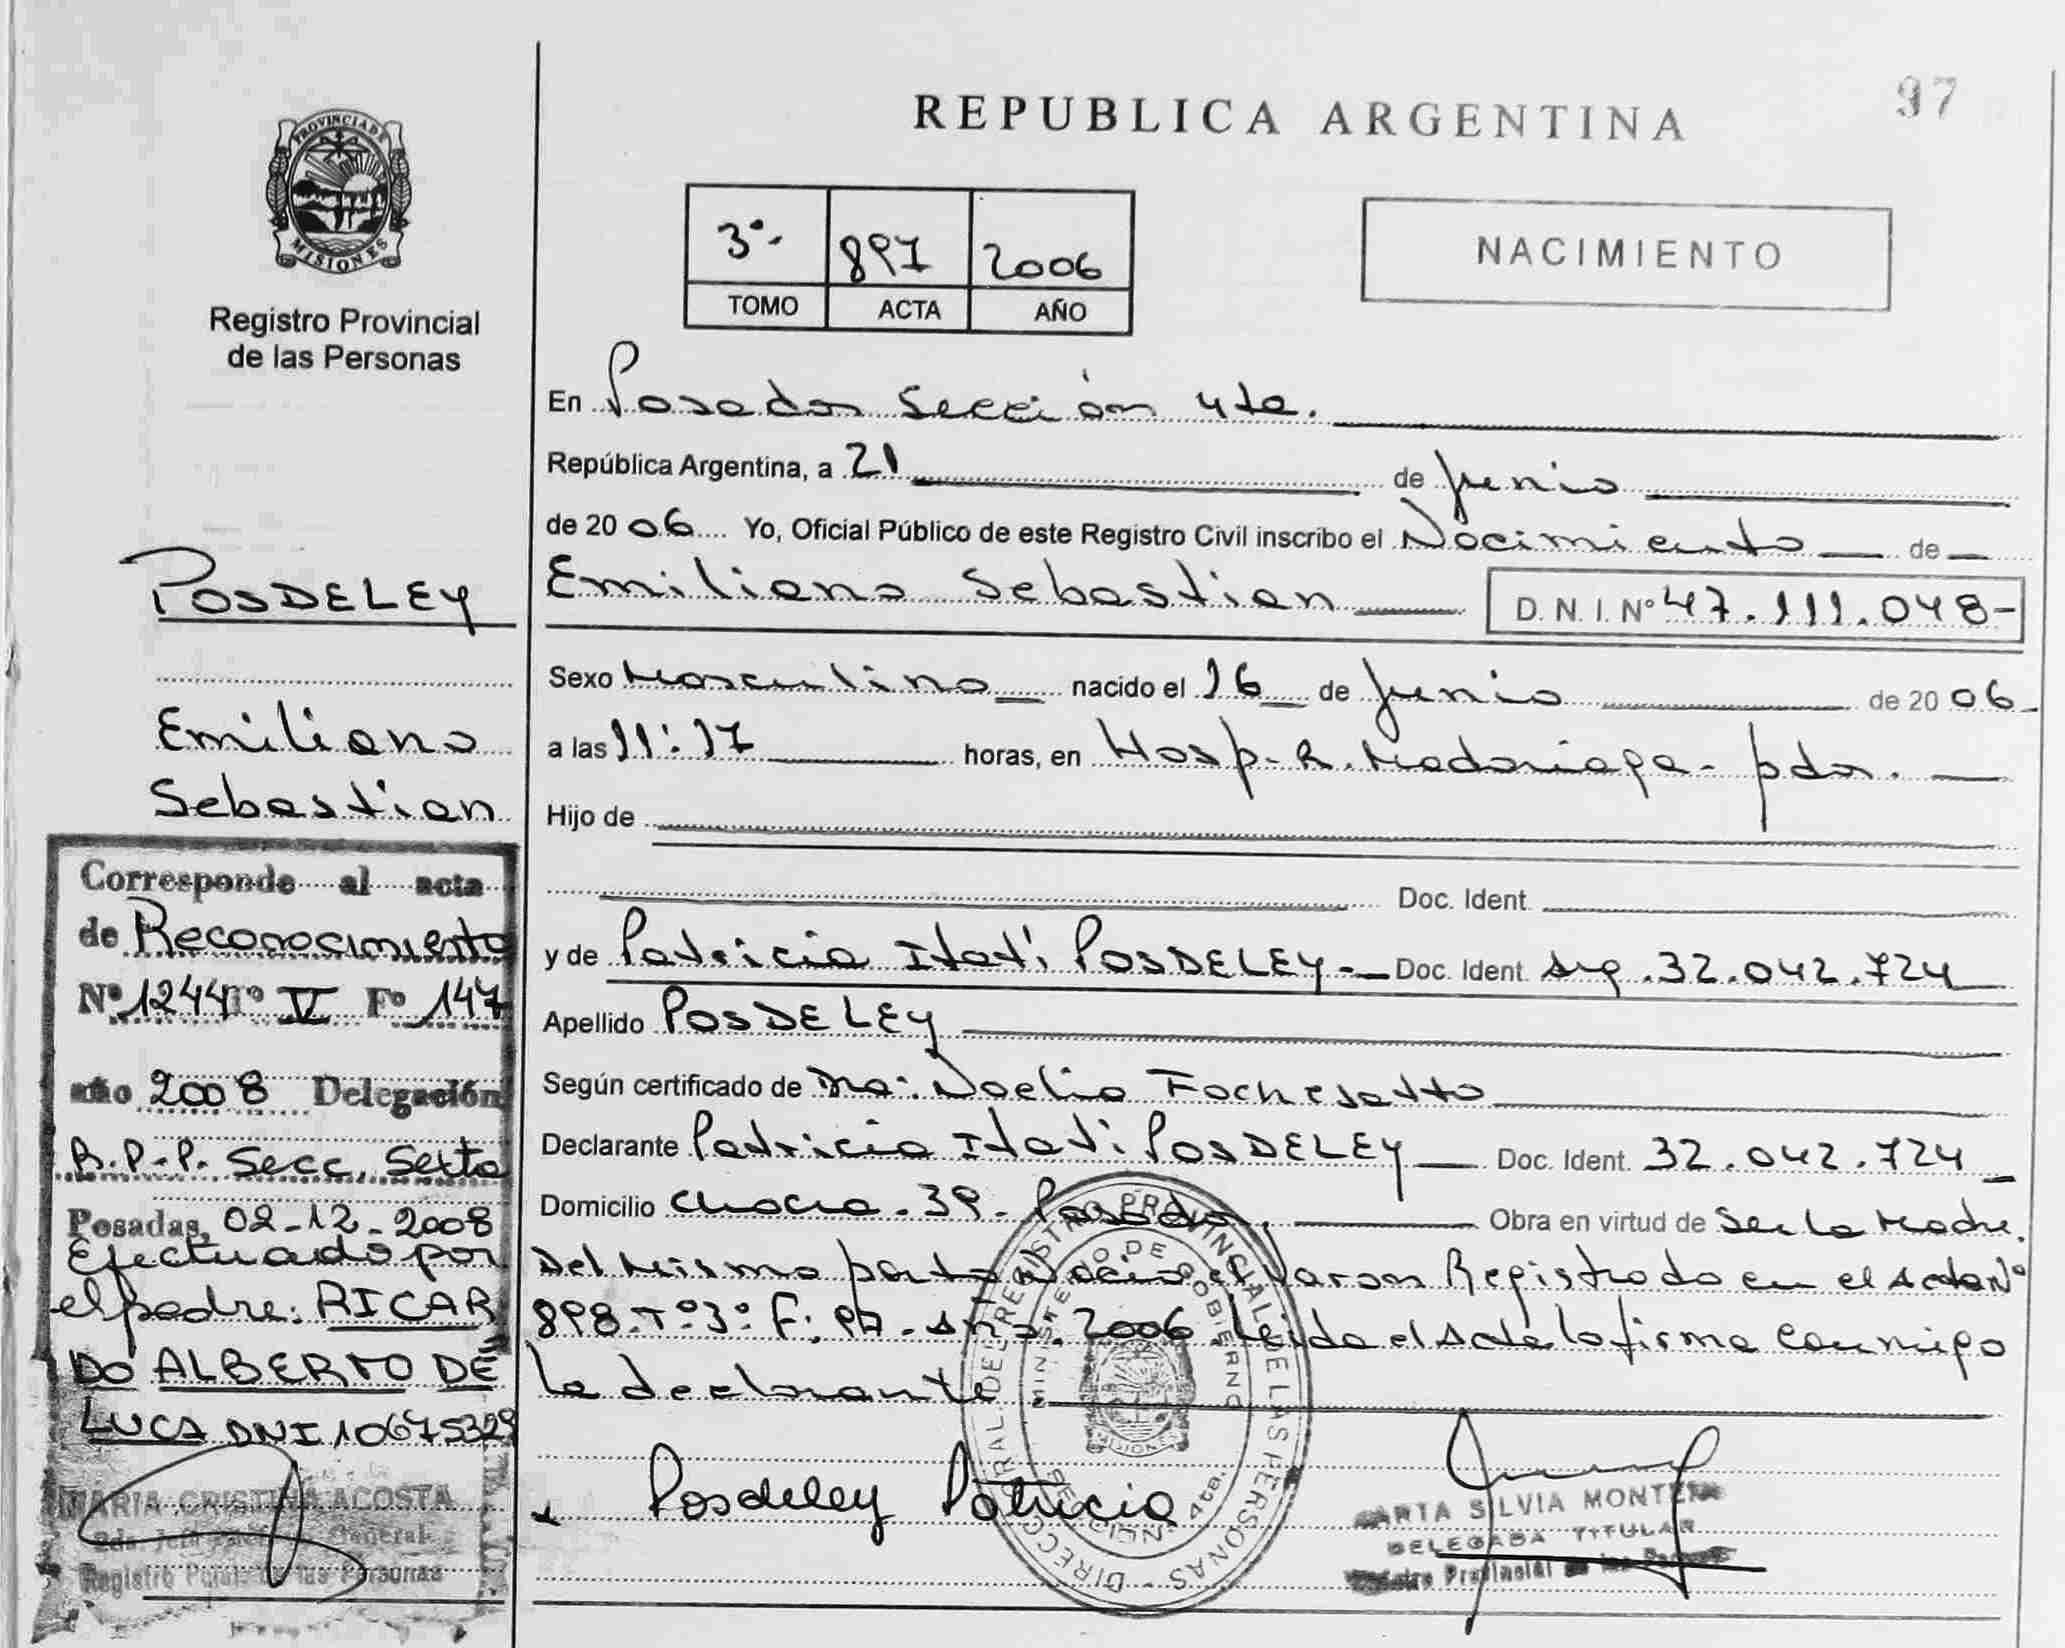 97
REPUBLICA ARGENTINA
PROVINCIA DE
MISIONES
Registro Provincial
de las Personas
3º- 897 2006
TOMO ACTA AÑO
NACIMIENTO
En Posadas Sección 4ta.
República Argentina, a 21 de Junio
de 2006 Yo, Oficial Público de este Registro Civil inscribo el Nacimiento de
Emiliano Sebastian D. N. I. Nº 47.111.048-
Sexo Masculino nacido el 16 de Junio de 2006
a las 11:17 horas, en Hosp. R. Madariaga - pdas.
Hijo de
Doc. Ident.
y de Patricia Itatí POSDELEY- Doc. Ident. Arg. 32.042.724
Apellido POSDELEY
Según certificado de Dra: Noelia Fochesatto
Declarante Patricia Itatí POSDELEY Doc. Ident. 32.042.724
Domicilio Chacra. 39. Posadas. Obra en virtud de Ser la Madre.
Del Mismo parto Nació el Varon Registrado en el Acta Nº
898. Tº 3º F: 97. Año. 2006. Leida el Acta la firma conmigo
la declarante
Posdeley Patricia
MARTA SILVIA MONTERA
DELEGADA TITULAR
Registro Provincial de las Personas
DIRECCION GRAL DEL REGISTRO PROVINCIAL DE LAS PERSONAS
MINISTERIO DE GOBIERNO
MISIONES
SECCION 4ta.
POSDELEY
Emiliano
Sebastian
Corresponde al acta
de Reconocimiento
Nº 1244 Tº V Fº 147
año 2008 Delegación
R.P.P. Secc. Sexta
Posadas, 02-12-2008
Efectuado por
el padre: RICAR
DO ALBERTO DE
LUCA DNI 10675329
MARIA CRISTINA ACOSTA
General
Registro de las Personas